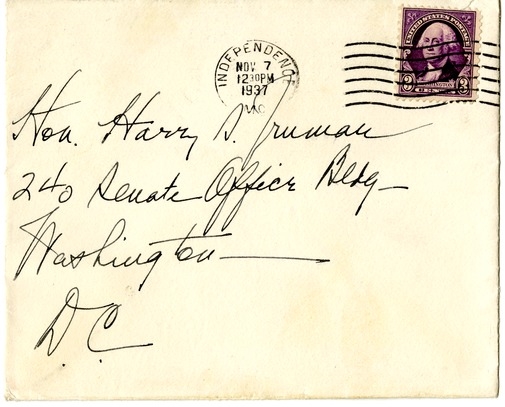 UNITED STATES POSTAGE
3 WASHINGTON 3
INDEPENDENCE
NOV 7
12 30PM
1937
MO.
Hon. Harry S. Truman
240 Senate Office Bldg—
Washington—
D.C.